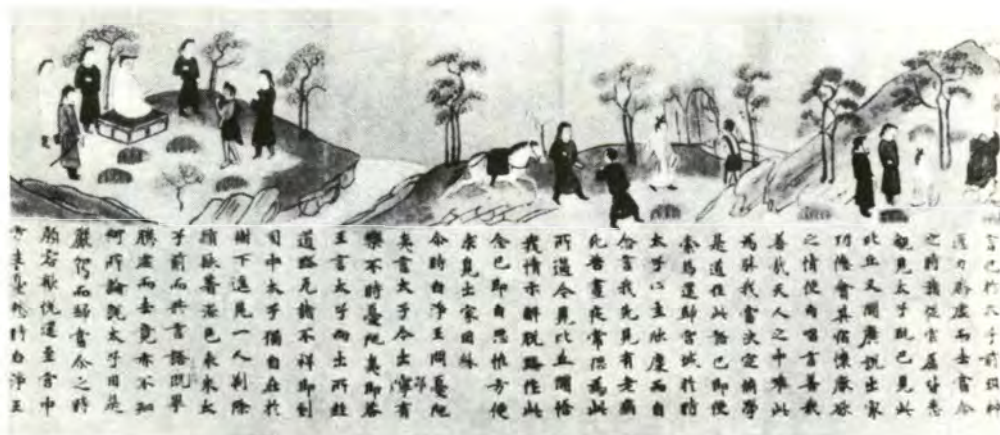 言已於太子前現神
通力騰虛而去當尒
之時諸從官屬皆悉
覩見太子既已見此
比丘又聞廣說出家
功德會其宿懷厭欲
之情便自唱言善哉
善哉天人之中唯此
為勝我當決定脩學
是道作此語已即便
索馬還歸宮城於時
太子心生欣慶而自
念言我先見有老病
死苦晝夜常恐為此
所逼今見比丘開悟
我情示解脫路作此
念已即自思惟方便
求覓出家因緣
尒時白淨王問憂陀
夷言太子今出寧有
樂不時憂陀夷即答
王言太子向出所經
道路无諸不祥即到
園中太子獨自在於
樹下遙見一人剃除
鬚髮著染色衣來太
子前而共言語既畢
騰虛而去竟亦不知
何所論說太子因是
嚴駕而歸當尒之時
顏容歡悅還至宮中
方生憂愁尒時白淨王